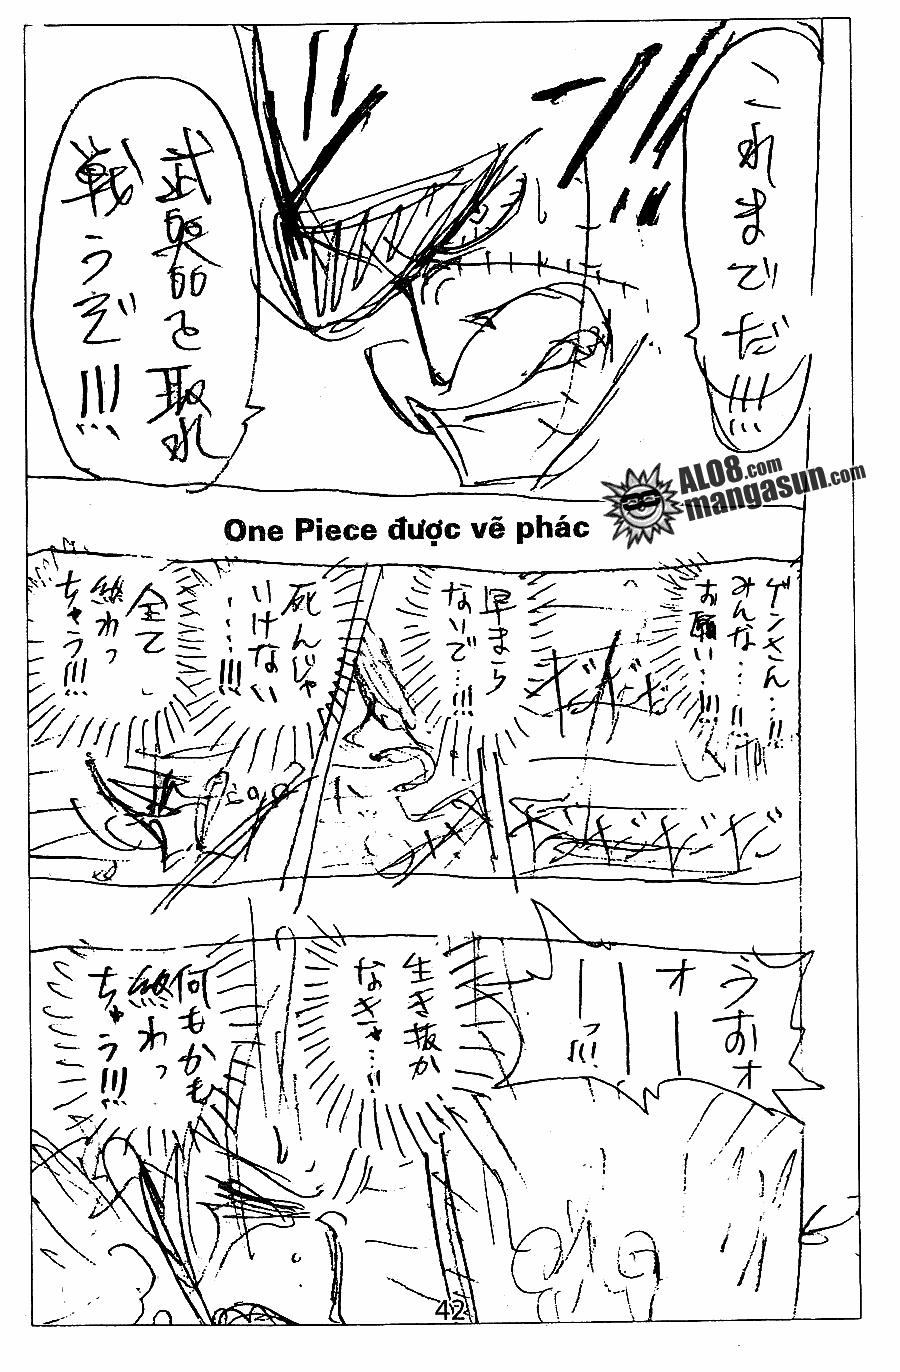 これまでだ!!!
武器を取れ
戦うぞ!!!
AL08.com
mangasun.com
One Piece được vẽ phác
ゲンさん…!!
みんな…!!
お願い…!!!
早まら
ないで…!!!
死んじゃ
いけない
……!!!
全て
終わっ
ちゃう!!!
ギギギ
ギギギギギ
うおォ
オー
ーーっ!!!
生き抜か
なきゃ…!!
何もかも
終わっ
ちゃう!!!
42